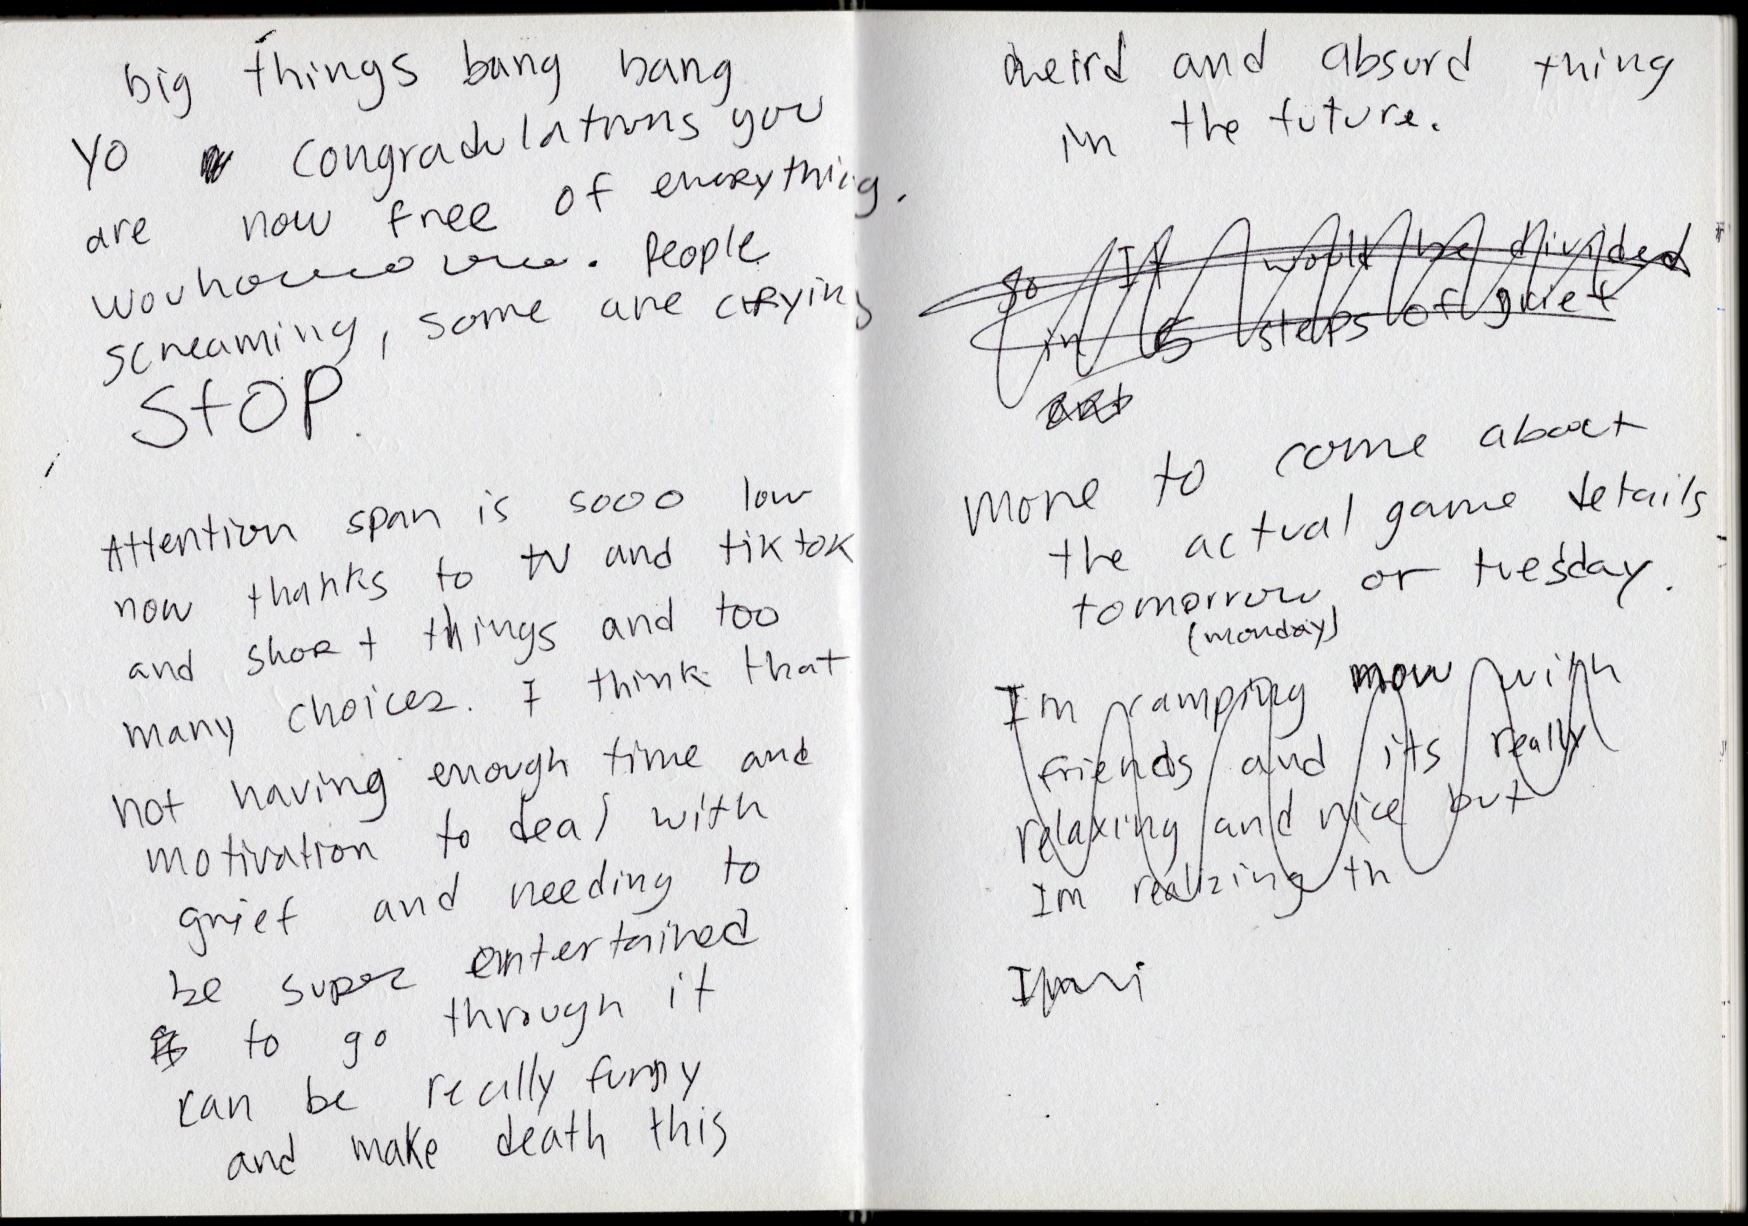 big things bang bang
Yo congradulations you
are now free of everything.
People
screaming, some are crying
StOP.
Attention span is sooo low
now thanks to tv and tiktok
and short things and too
many choices. I think that
not having enough time and
motivation to deal with
grief and needing to
be super entertained
to go through it
can be really funny
and make death this
weird and absurd thing
in the future.
so It would be divided
in 5 steps of grief
More to come about
the actual game details
tomorrow or tuesday.
(monday)
Im ramping now with
friends and its really
relaxing and nice but
Im realizing th